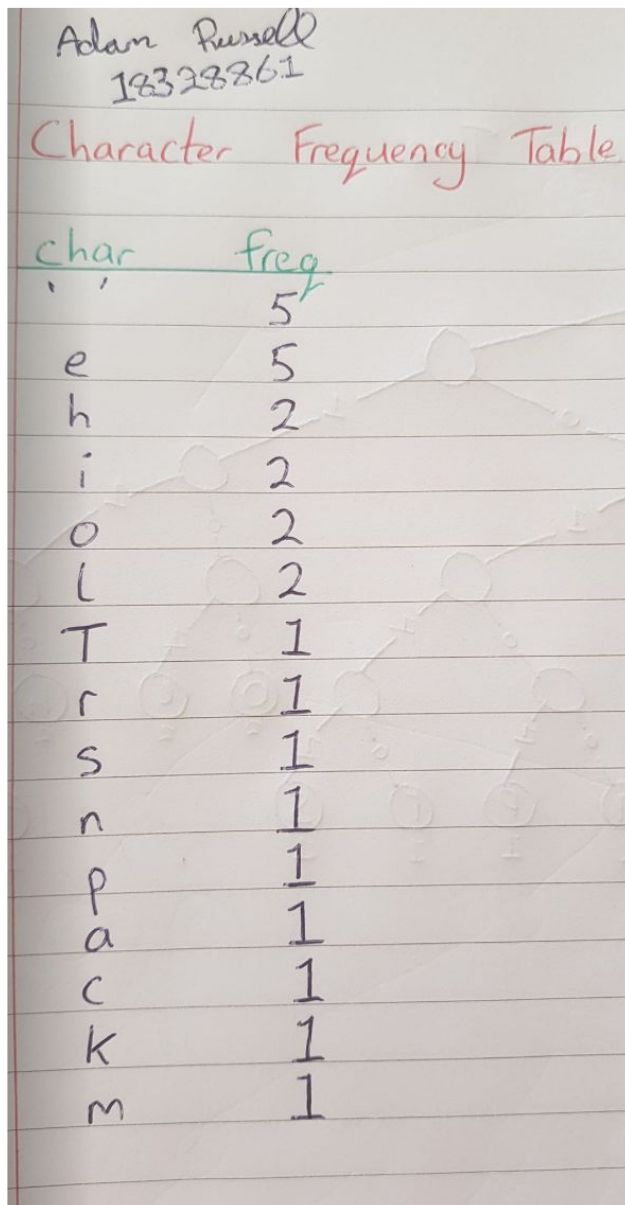 Adam Russell
18328861
Character Frequency Table
char freq
' ' 5
e 5
h 2
i 2
o 2
l 2
T 1
r 1
s 1
n 1
p 1
a 1
c 1
k 1
m 1